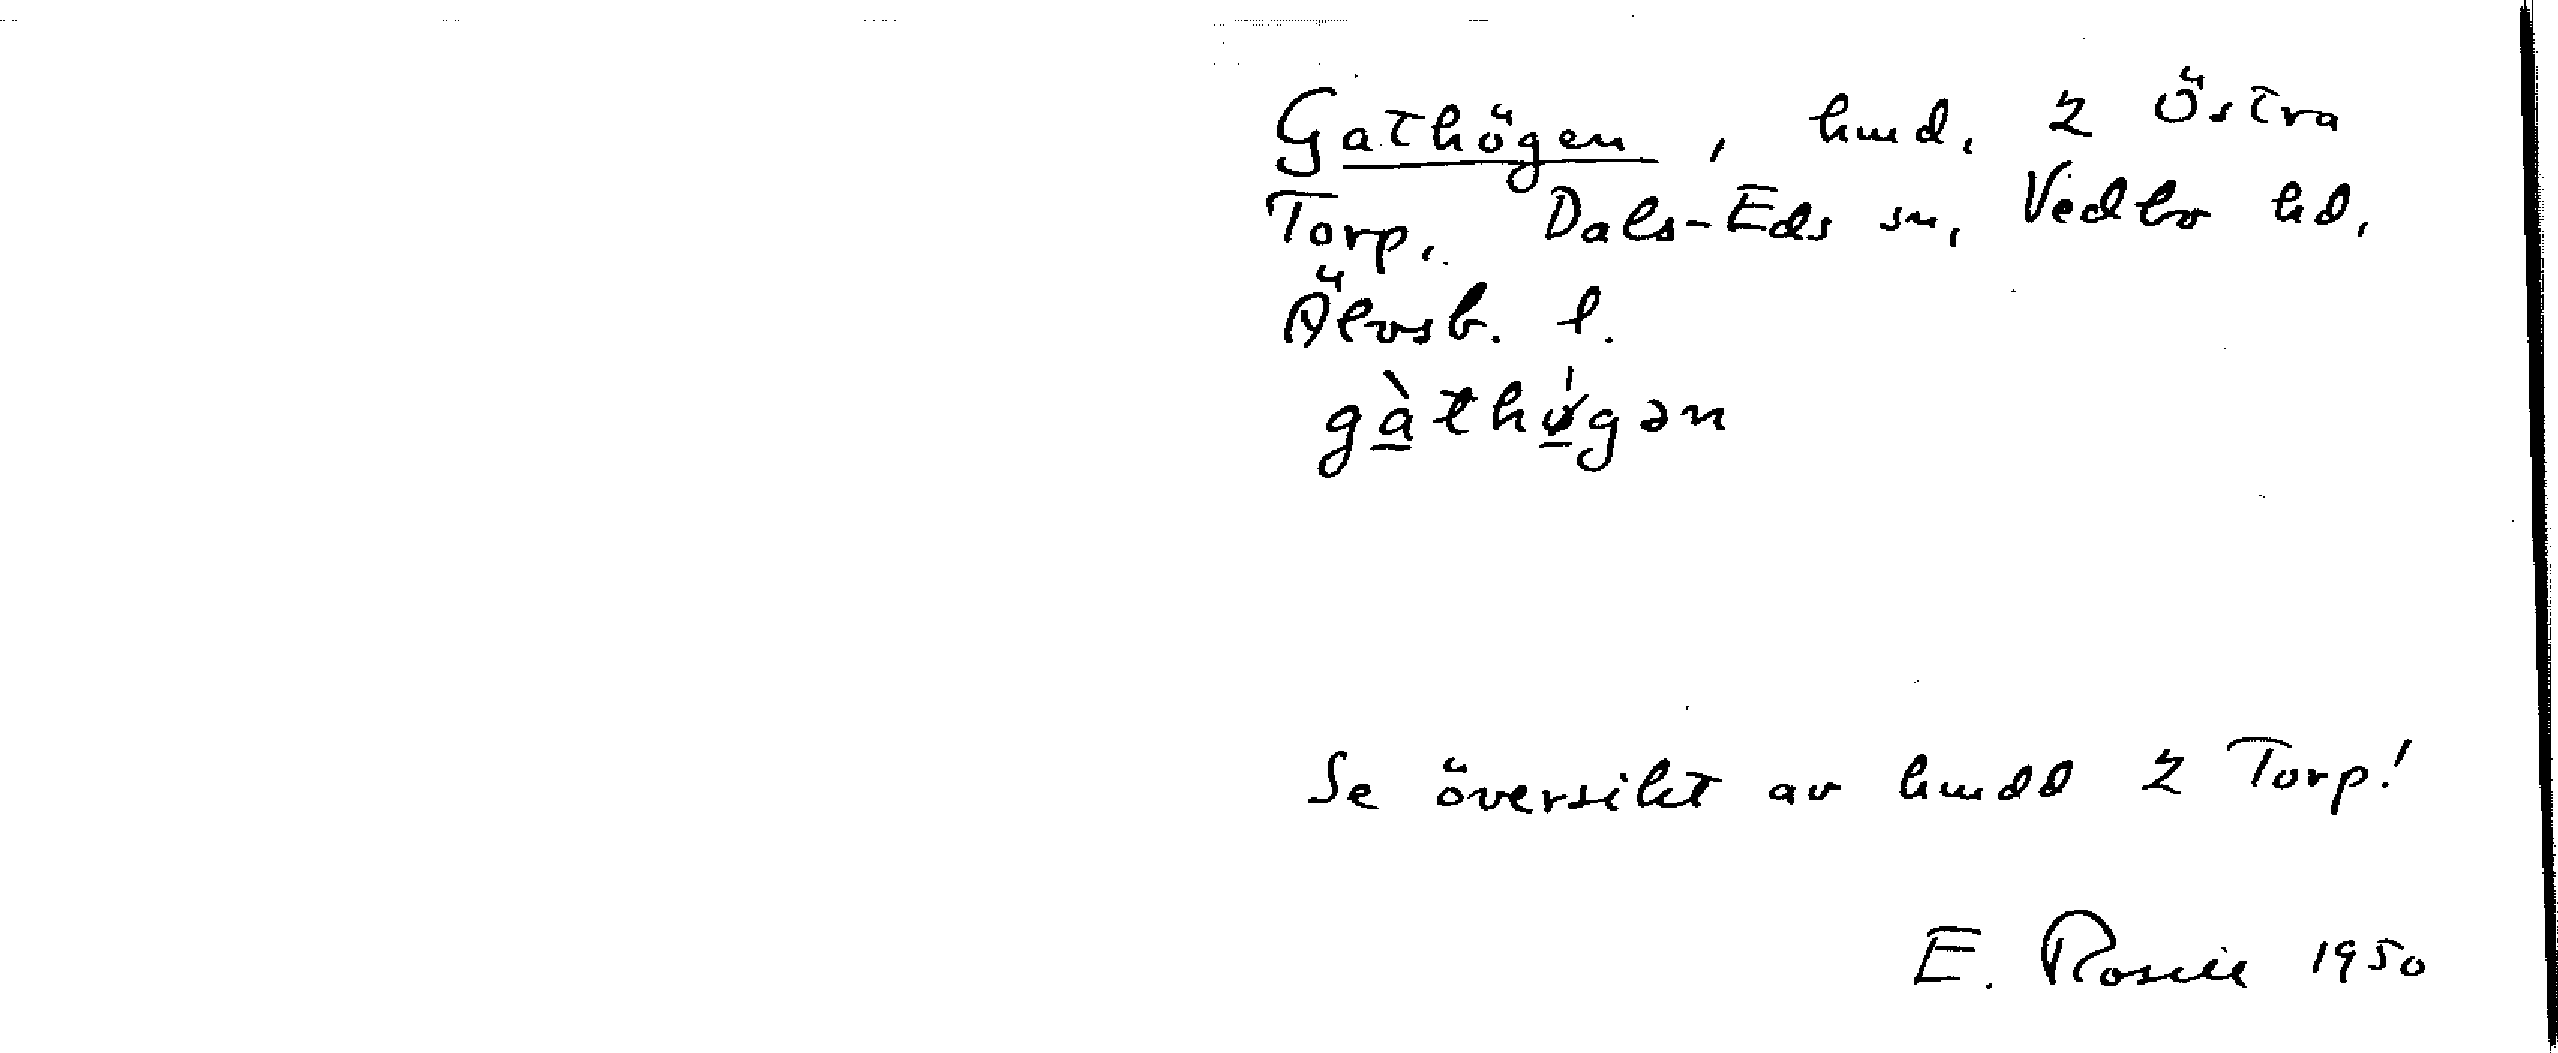 Gathögen, hmd. 2 Östra
Torp. Dals-Eds sn, Vedbo hd,
Älvsb. l.
gàthǿgən
Se översikt av hmdd 2 Torp!
E. Rosell 1950